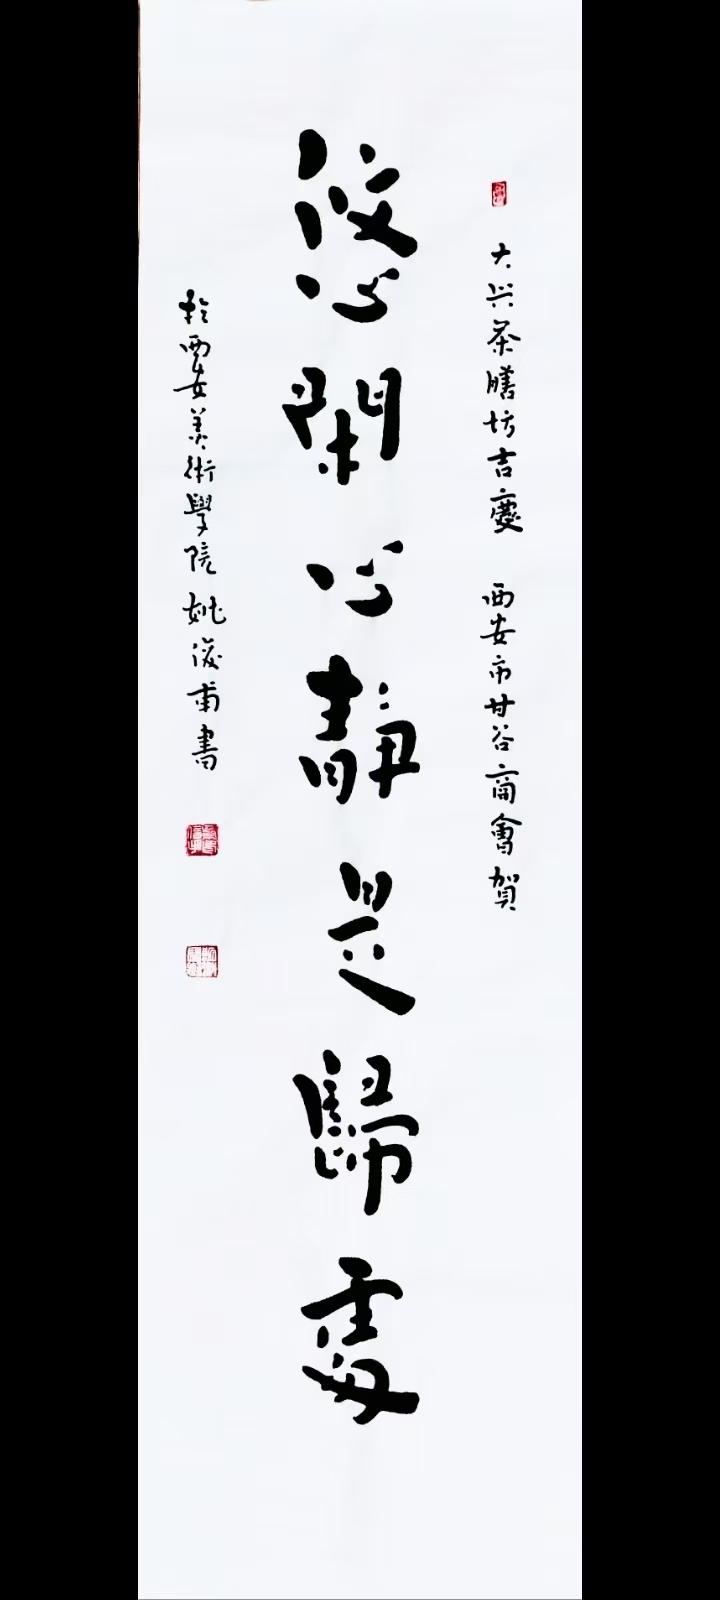 大兴茶膳坊吉慶 西安市甘谷商會賀
悠閑心靜是歸處
於西安美術學院 姚俊甫書